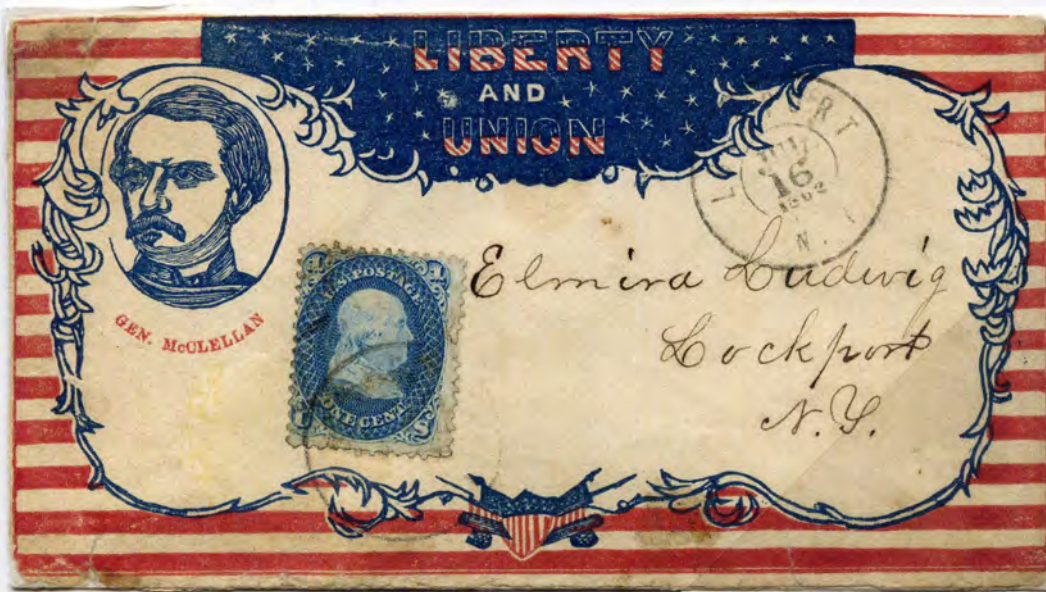 LIBERTY
AND
UNION
16
N.
GEN. McCLELLAN
U.S. POSTAGE
ONE CENT
Elmira Ludwig
Lockport
N.Y.